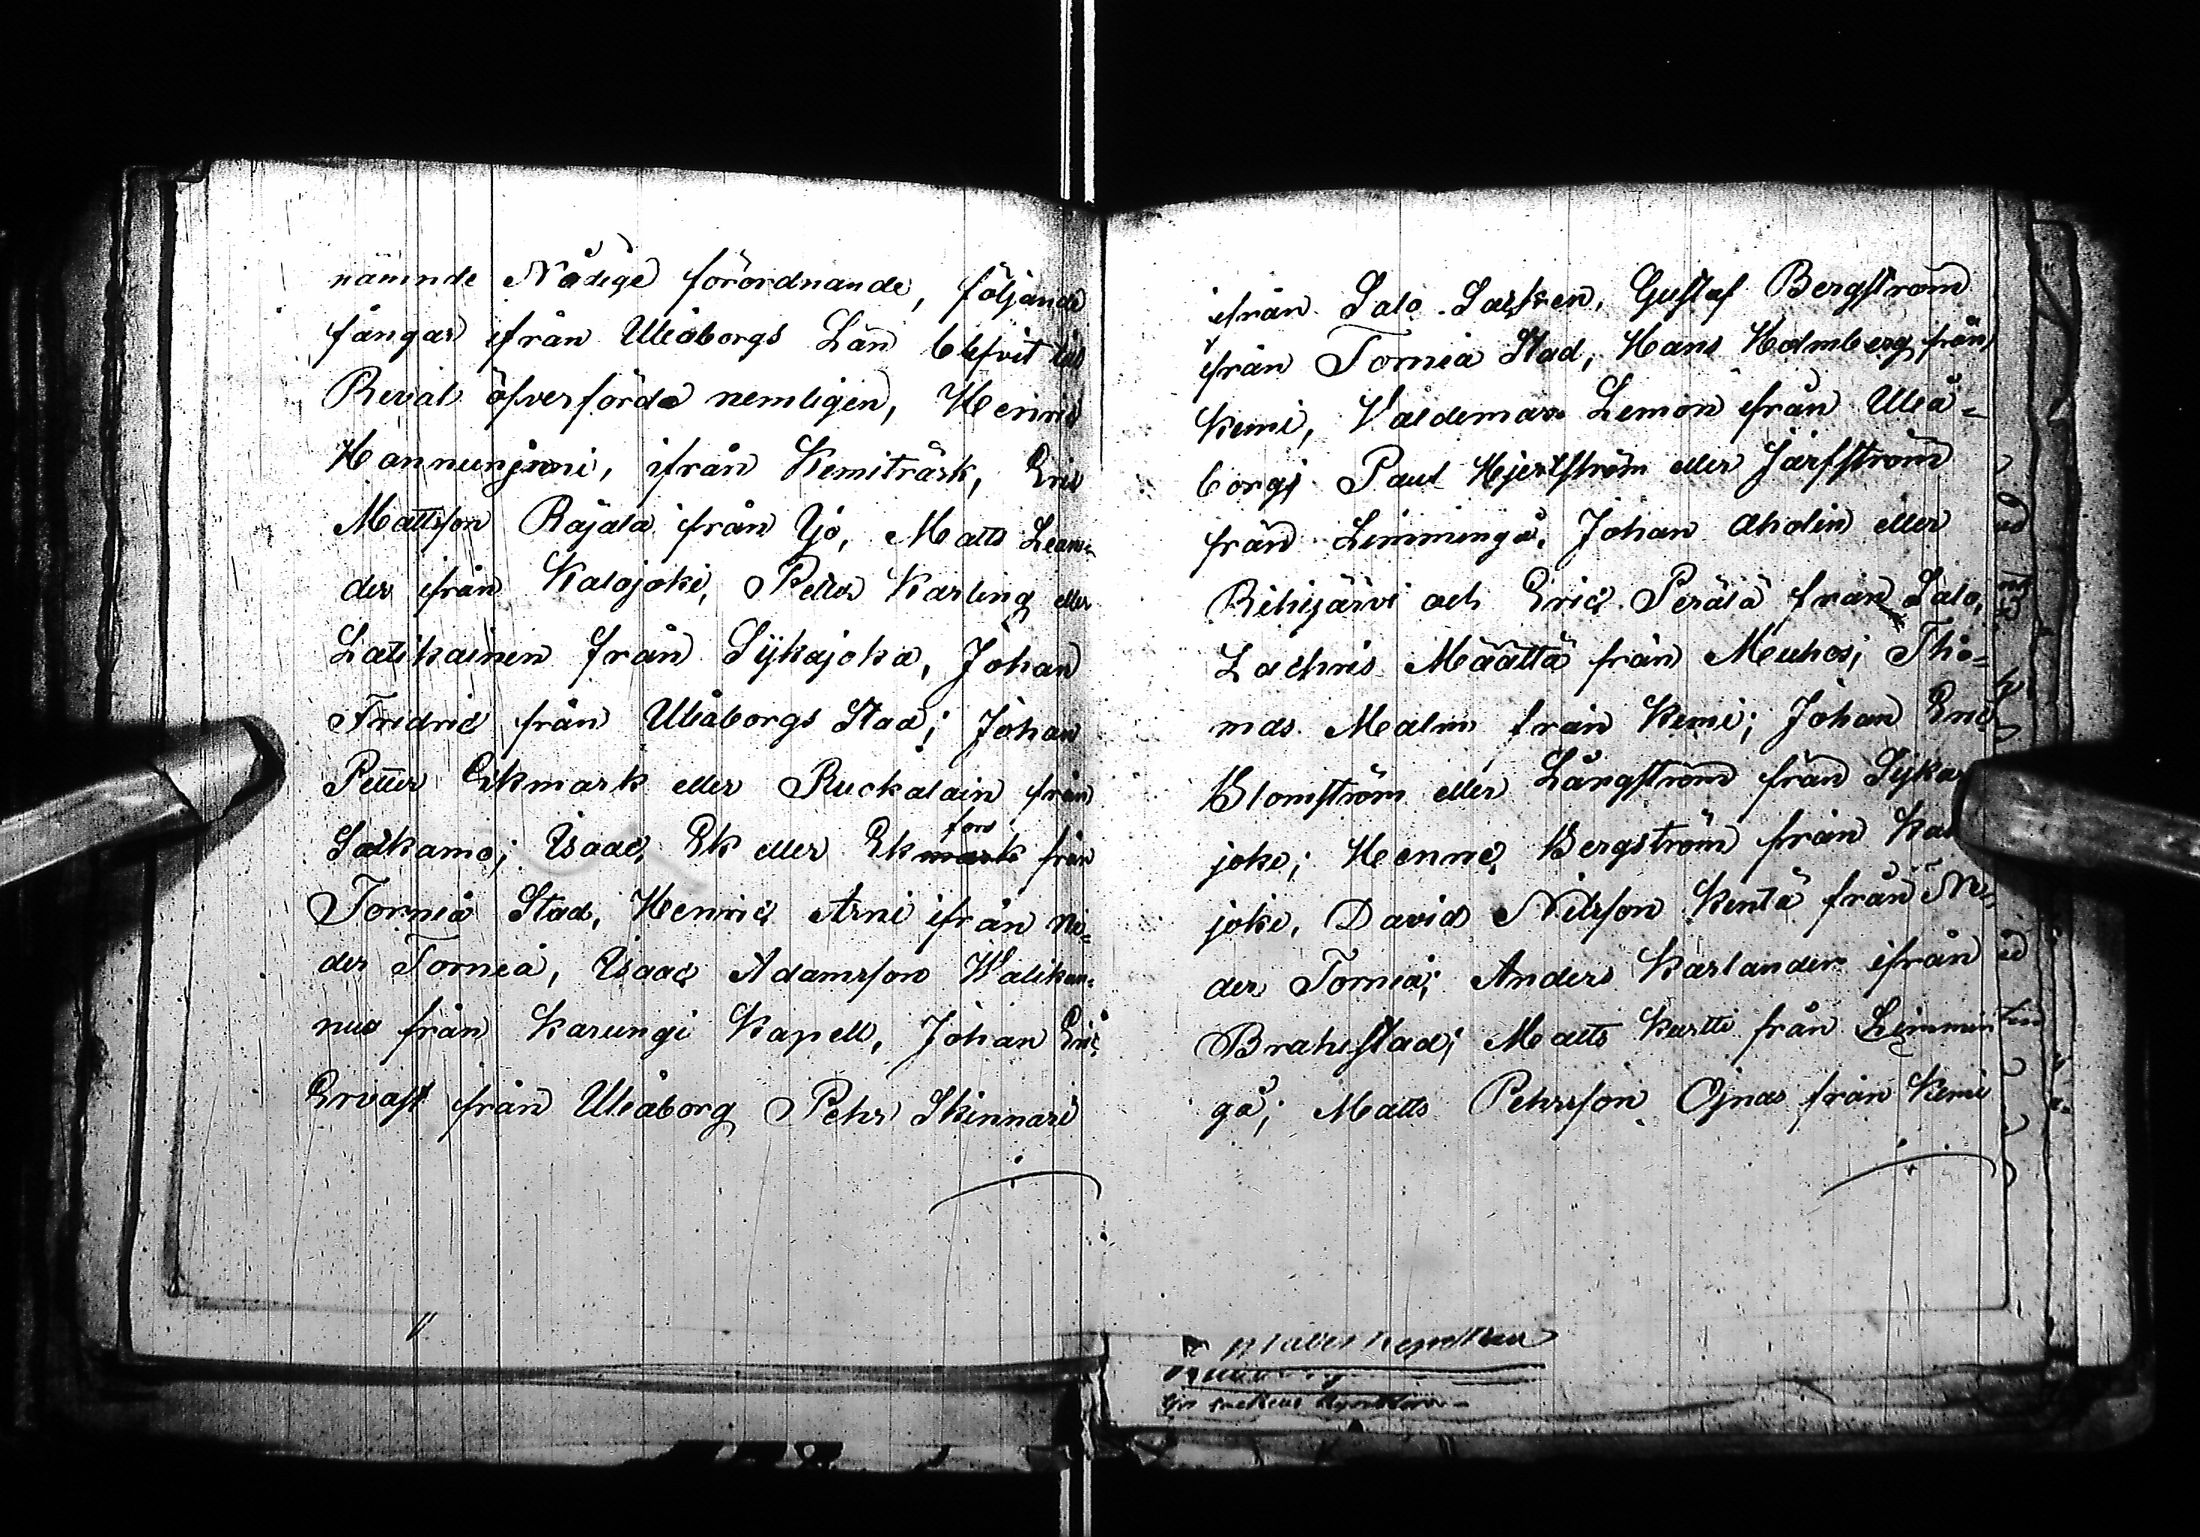 nämnde Nådige förordnande, följande
fångar ifrån Uleåborgs Län blefvit till
Reval öfverförde nemligen, Henric
Hannunjuoni, ifrån Kemiträsk, Eric
Mattsson Rajala från Ijo, Matts Lean-
der från Kalajoki, Petter Karling eller
Latikainen från Sijkajoka, Johan
Fredric från Uleåborgs Stad; Johan
Petter Ekmark eller Ruckalain från
Sotkamo; Isaac Ek eller Ekfors från
Torneå Stad, Henric Arni ifrån Ne-
der Torneå, Isaac Adamsson Walikan-
nus från Karungi Kapell, Johan Eric
Ervast från Uleåborg Pehr Skinnari
ifrån Salo Socken, Gustaf Bergström
ifrån Torneå Stad, Hans Holmberg från
Kemi, Valdemar Lemon från Uleå-
borgs Paul Hjertström eller Järfström
från Limmingå, Johan Aholin eller
Rihijärvi och Eric Perälä från Salo,
Zachris Määttä från Muhos; Tho-
mas Malm från Kemi; Johan Eric
Blomström eller Långström från Sijka-
joki; Henric Bergström från Kala-
joki, David Nilsson Kentä från Ne-
der Torneå; Anders Karlander ifrån
Brahestad; Matts Kurtti från Limmin
gå; Matts Pehrsson Ojnas från Kemi